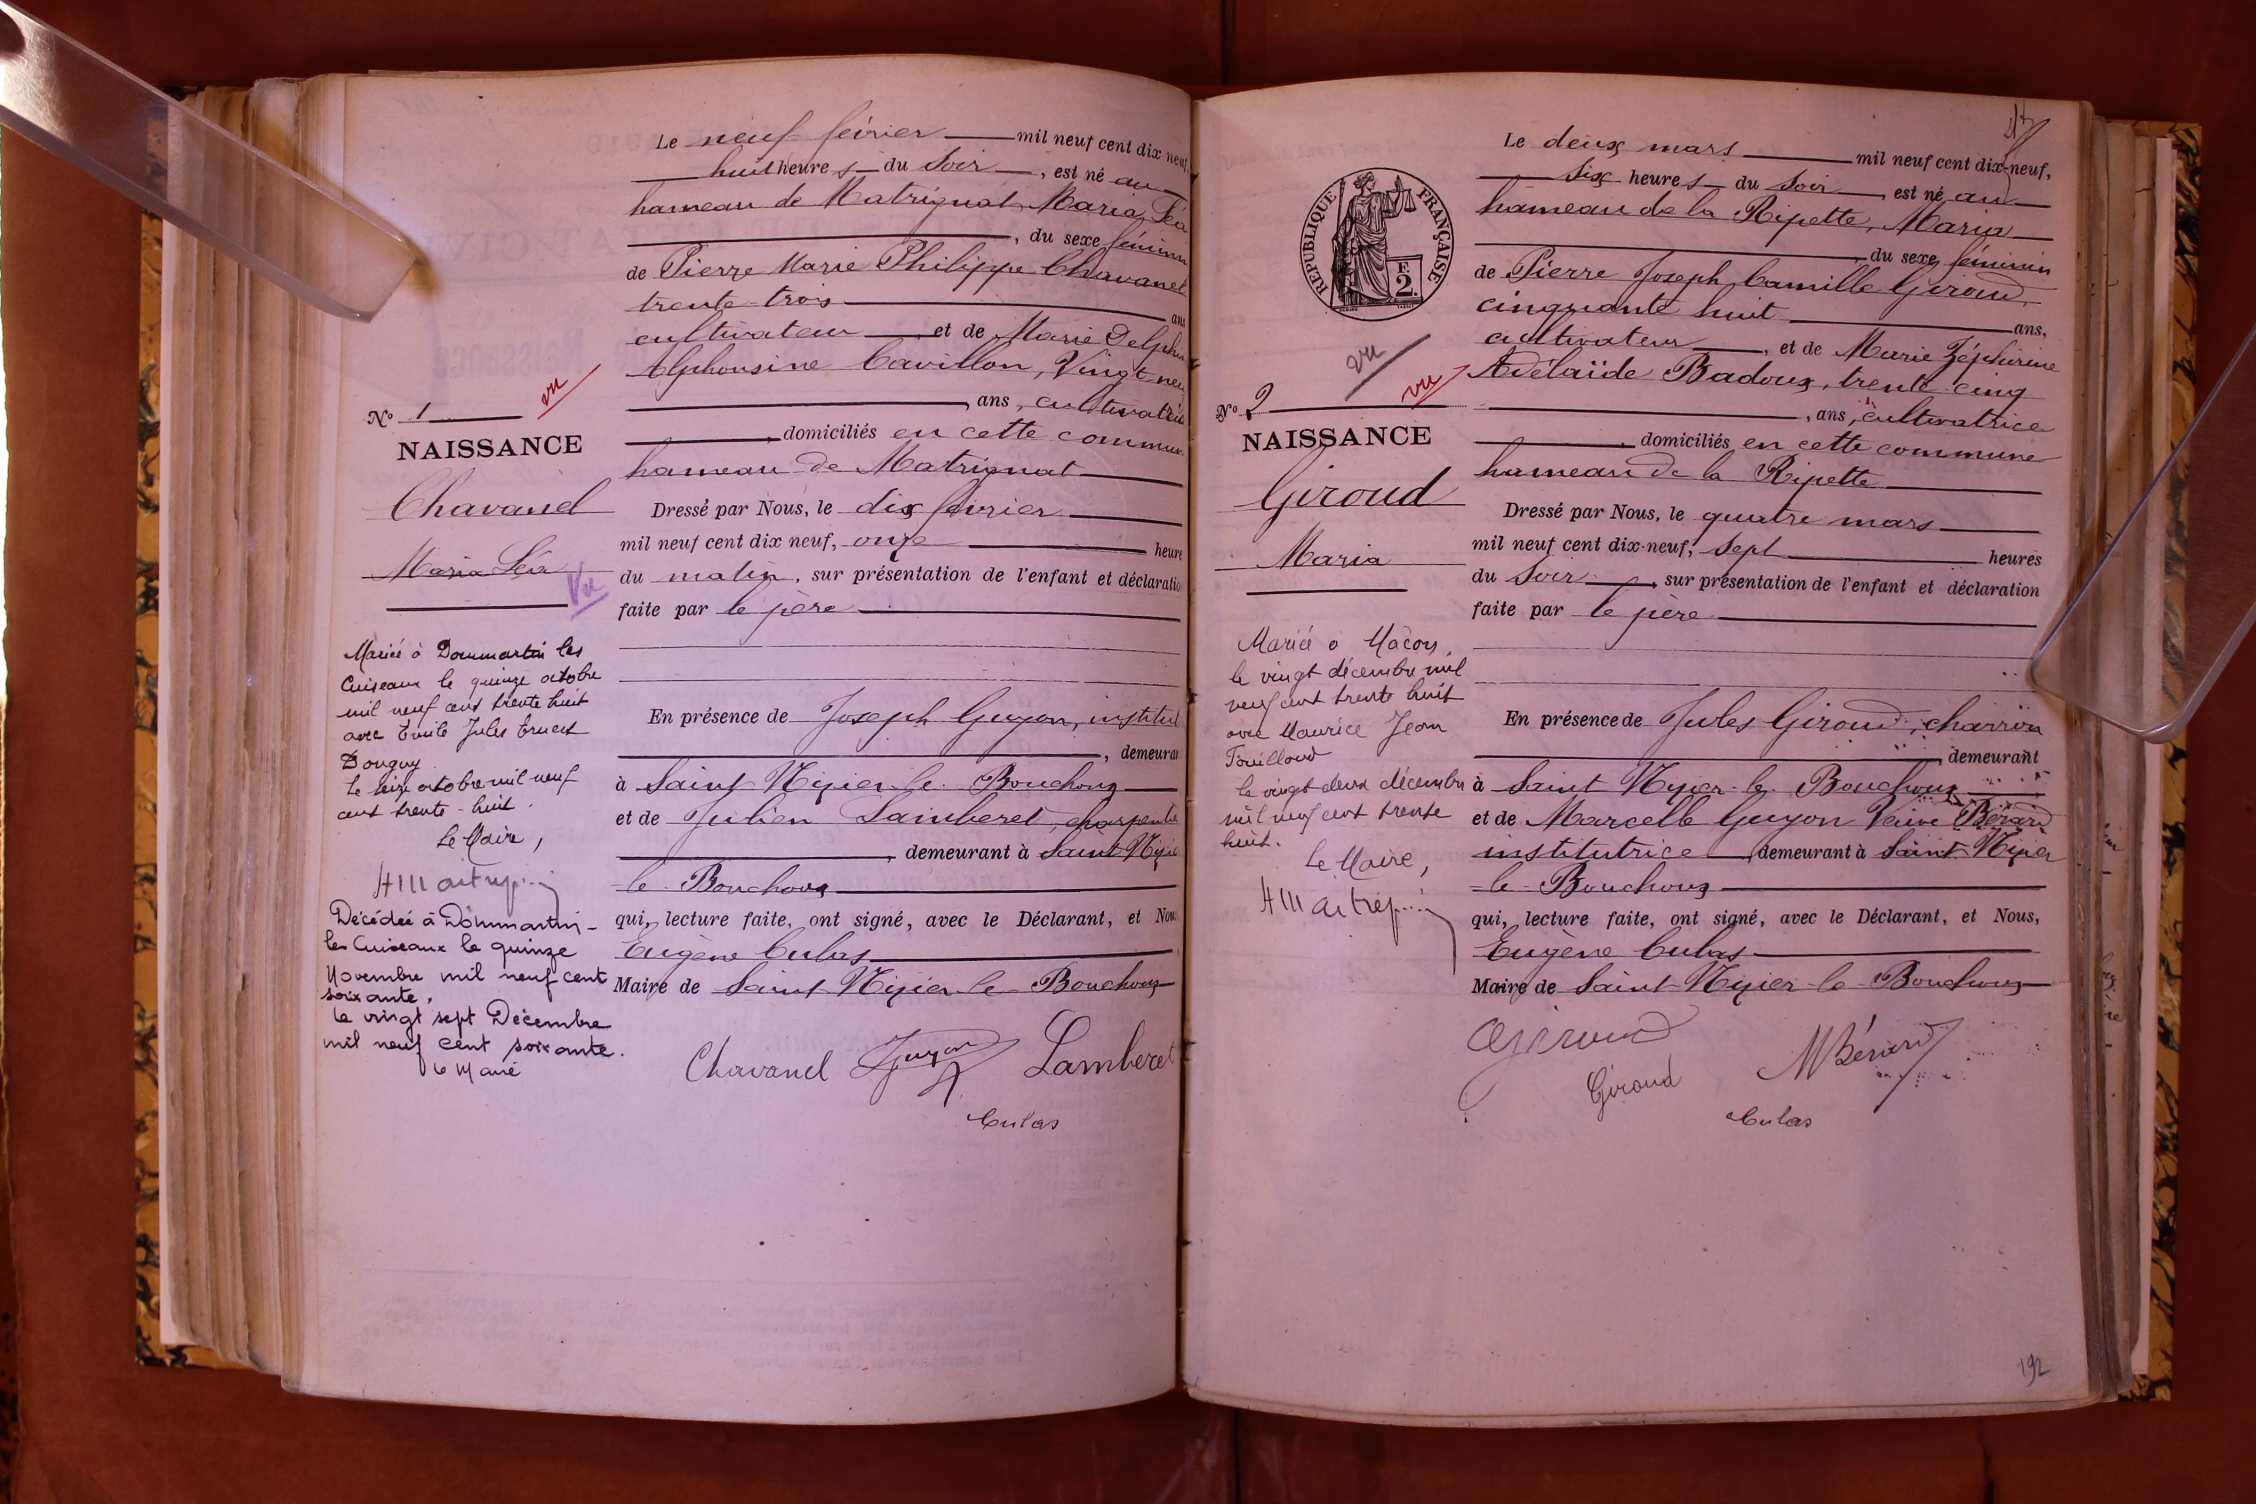 Le neuf février mil neuf cent dix neuf
huit heures du soir, est né au
hameau de Matrignat, Maria Léa
, du sexe féminin
de Pierre Marie Philippe Chavanel
trente-trois ans
cultivateur, et de Marie Delphin
Alphonsine Cavillon, Vingt neuf
, ans, cultivatrice
, domiciliés en cette commune
hameau de Matrignat
Dressé par Nous, le dix février
mil neuf cent dix neuf, onze heure
du matin, sur présentation de l'enfant et déclaratio
faite par le père
En présence de Joseph Guyon, institut
, demeuran
à Saint Nizier-le-Bouchoux
et de Julien Lamberet, charpentie
, demeurant à Saint-Nizie
le-Bouchoux
qui, lecture faite, ont signé, avec le Déclarant, et Nous
Eugène Culas
Maire de Saint-Nizier-le-Bouchoux
Chavanel Guyon Lamberet
Culas
vu
N° 1
NAISSANCE
Chavanel
Maria Léa
Vu
Mariée à Dommartin les
Cuiseaux le quinze octobre
mil neuf cent trente huit
avec Emile Jules Ernest
Donguy
Le seize octobre mil neuf
cent trente-huit.
Le Maire,
Décédée à Dommartin-
les Cuiseaux le quinze
Novembre mil neuf cent
soixante.
Le vingt sept Décembre
mil neuf cent soixante.
Le Maire
Le deux mars mil neuf cent dix-neuf,
six heures du soir, est né au
hameau de la Ripette, Maria
, du sexe féminin
de Pierre Joseph Camille Giroud,
cinquante huit ans,
cultivateur, et de Marie Zéphirine
Adélaïde Badoux, trente-cinq
, ans, cultivatrice
, domiciliés en cette commune
hameau de la Ripette
Dressé par Nous, le quatre mars
mil neuf cent dix-neuf, sept heures
du soir, sur présentation de l'enfant et déclaration
faite par le père
En présence de Jules Giroud, charron
, demeurant
à Saint Nizier-le-Bouchoux
et de Marcelle Guyon Veuve Bérard
institutrice, demeurant à Saint-Nizier
le-Bouchoux
qui, lecture faite, ont signé, avec le Déclarant, et Nous,
Eugène Culas
Maire de Saint-Nizier-le-Bouchoux
Giroud
Giroud
M Bérard
Culas
RÉPUBLIQUE FRANÇAISE
F.
2.
vu
vu
N° 2
NAISSANCE
Giroud
Maria
Mariée à Mâcon
le vingt décembre mil
neuf cent trente huit
avec Maurice Jean
Touilloud
le vingt deux décembre
mil neuf cent trente
huit.
Le Maire,
192